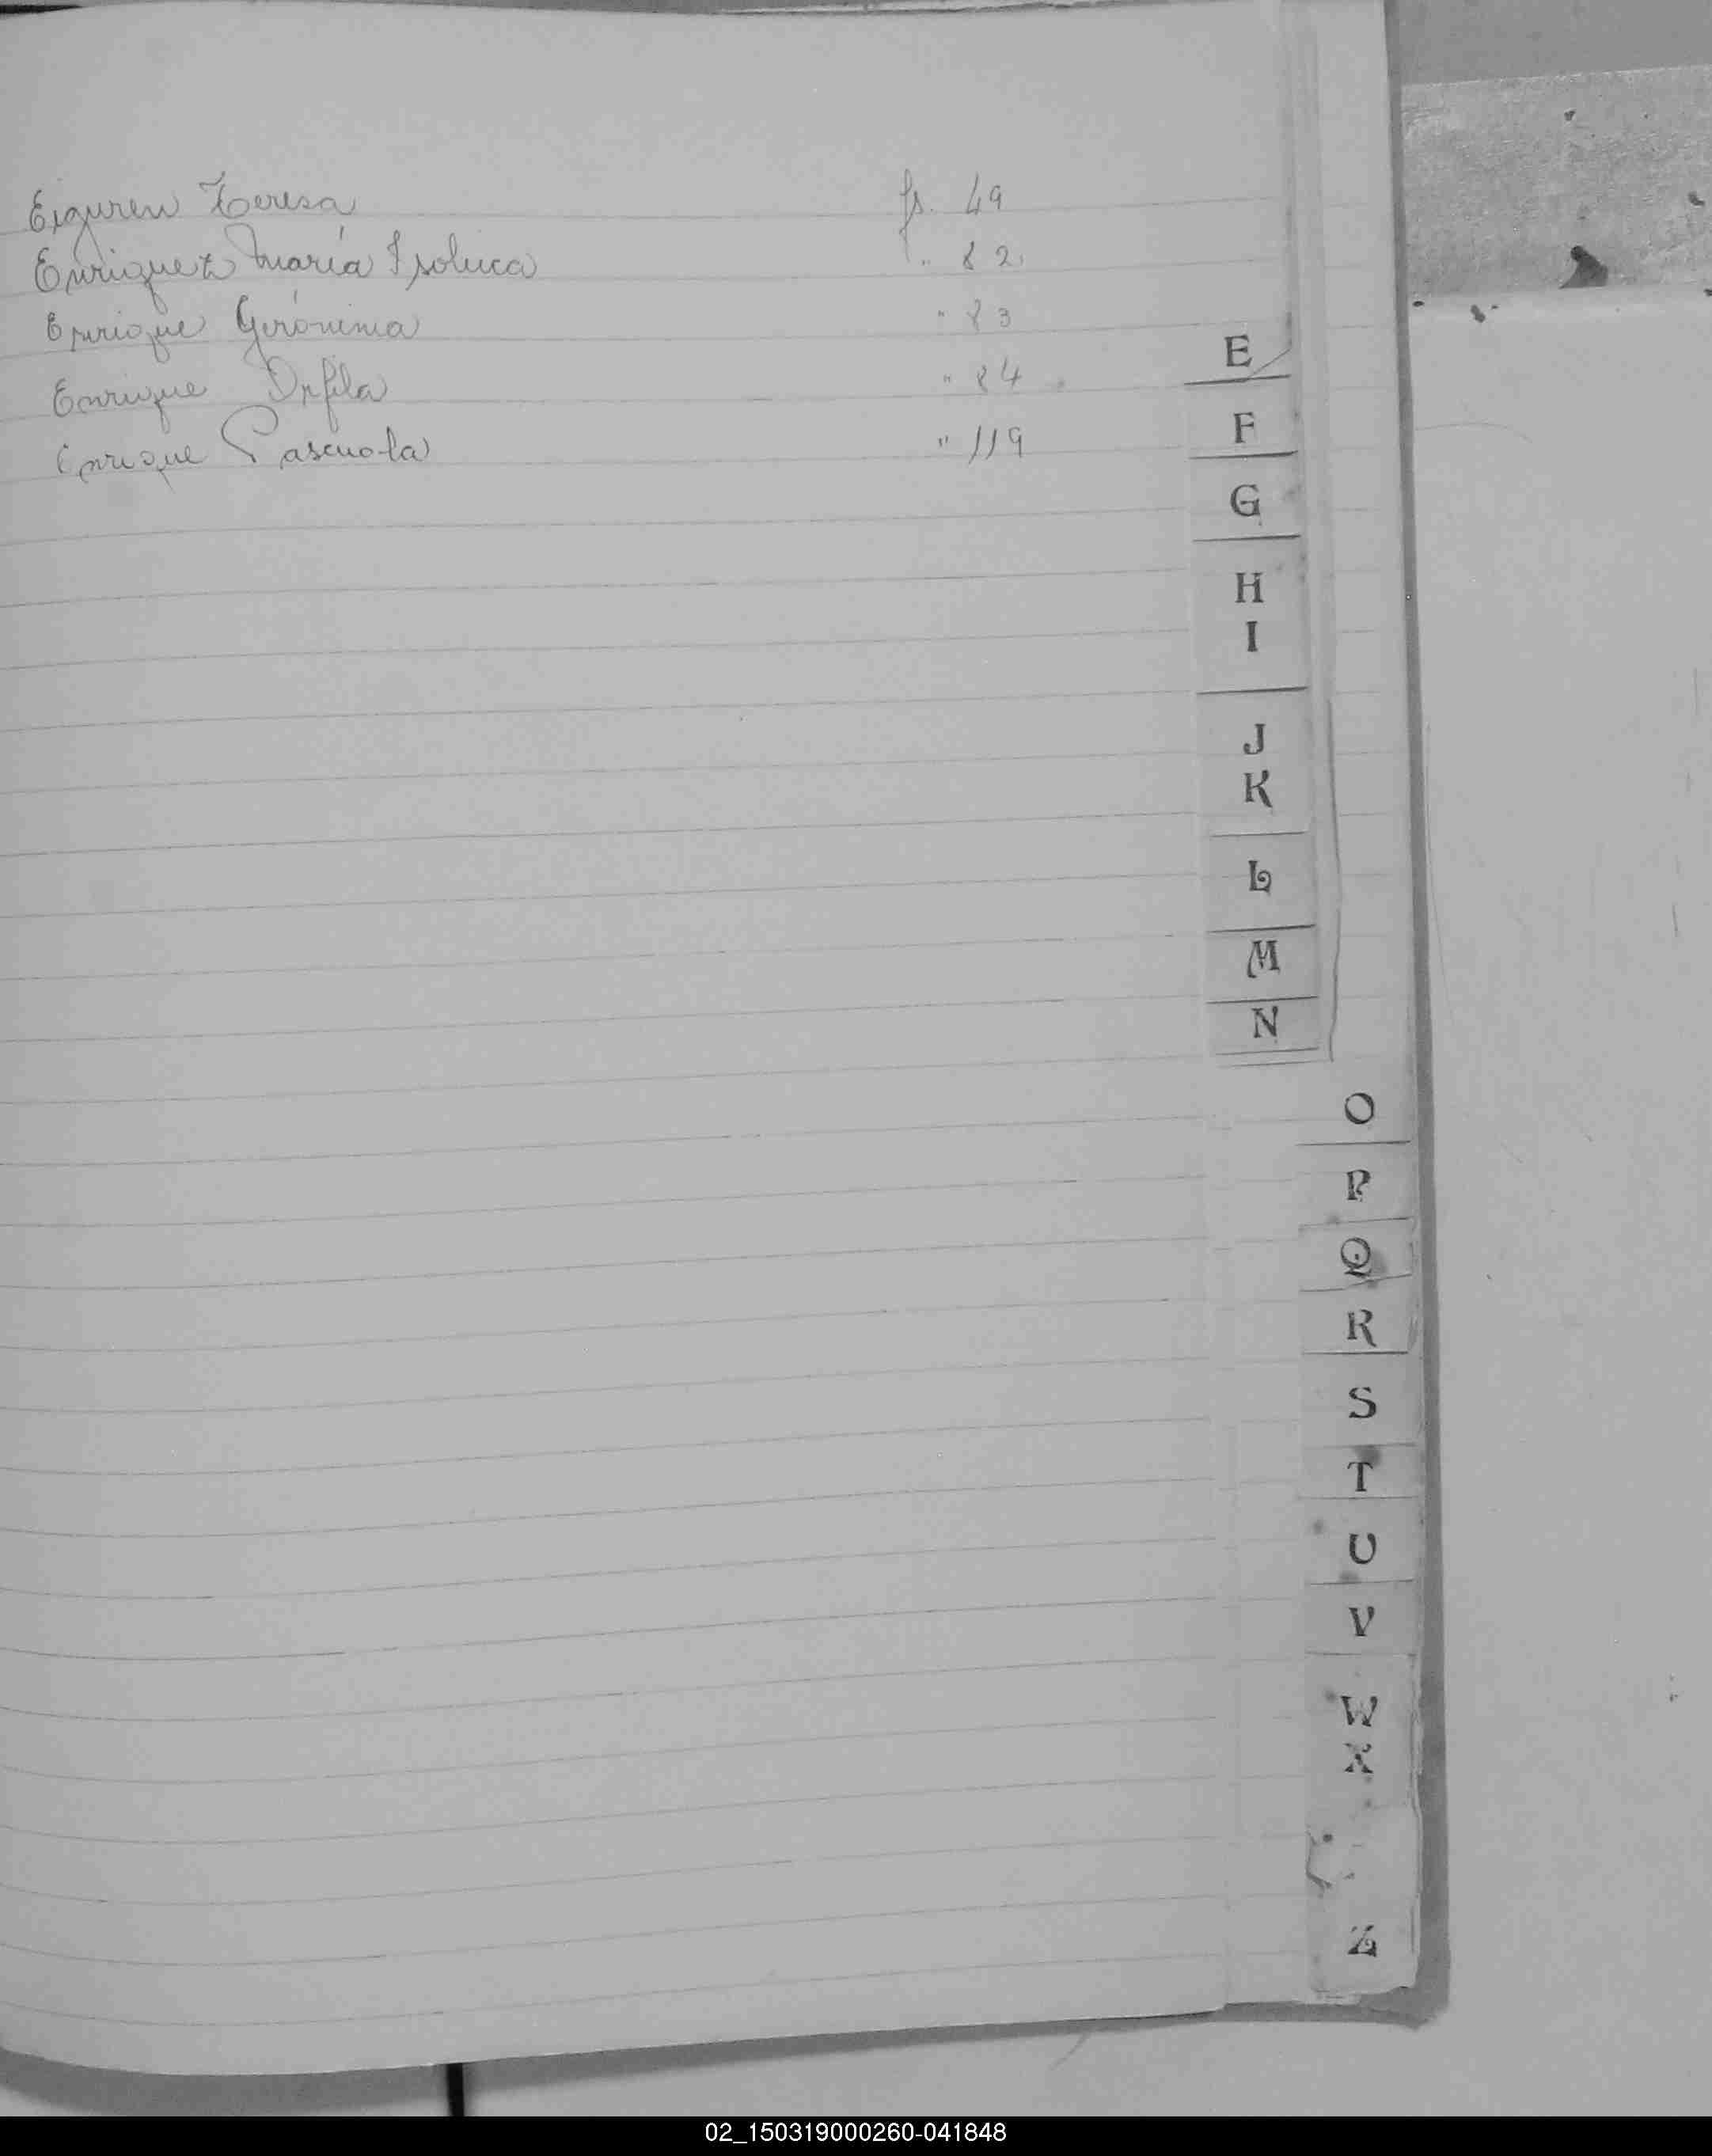 Eiguren Teresa fs. 49
Enriquez María Isolina " 82
Enrique Gerónima " 83
Enrique Orfila " 84
Enrique Pascuala " 119
E
F
G
H
I
J
K
L
M
N
O
P
Q
R
S
T
U
V
W
X
Z
02_150319000260-041848